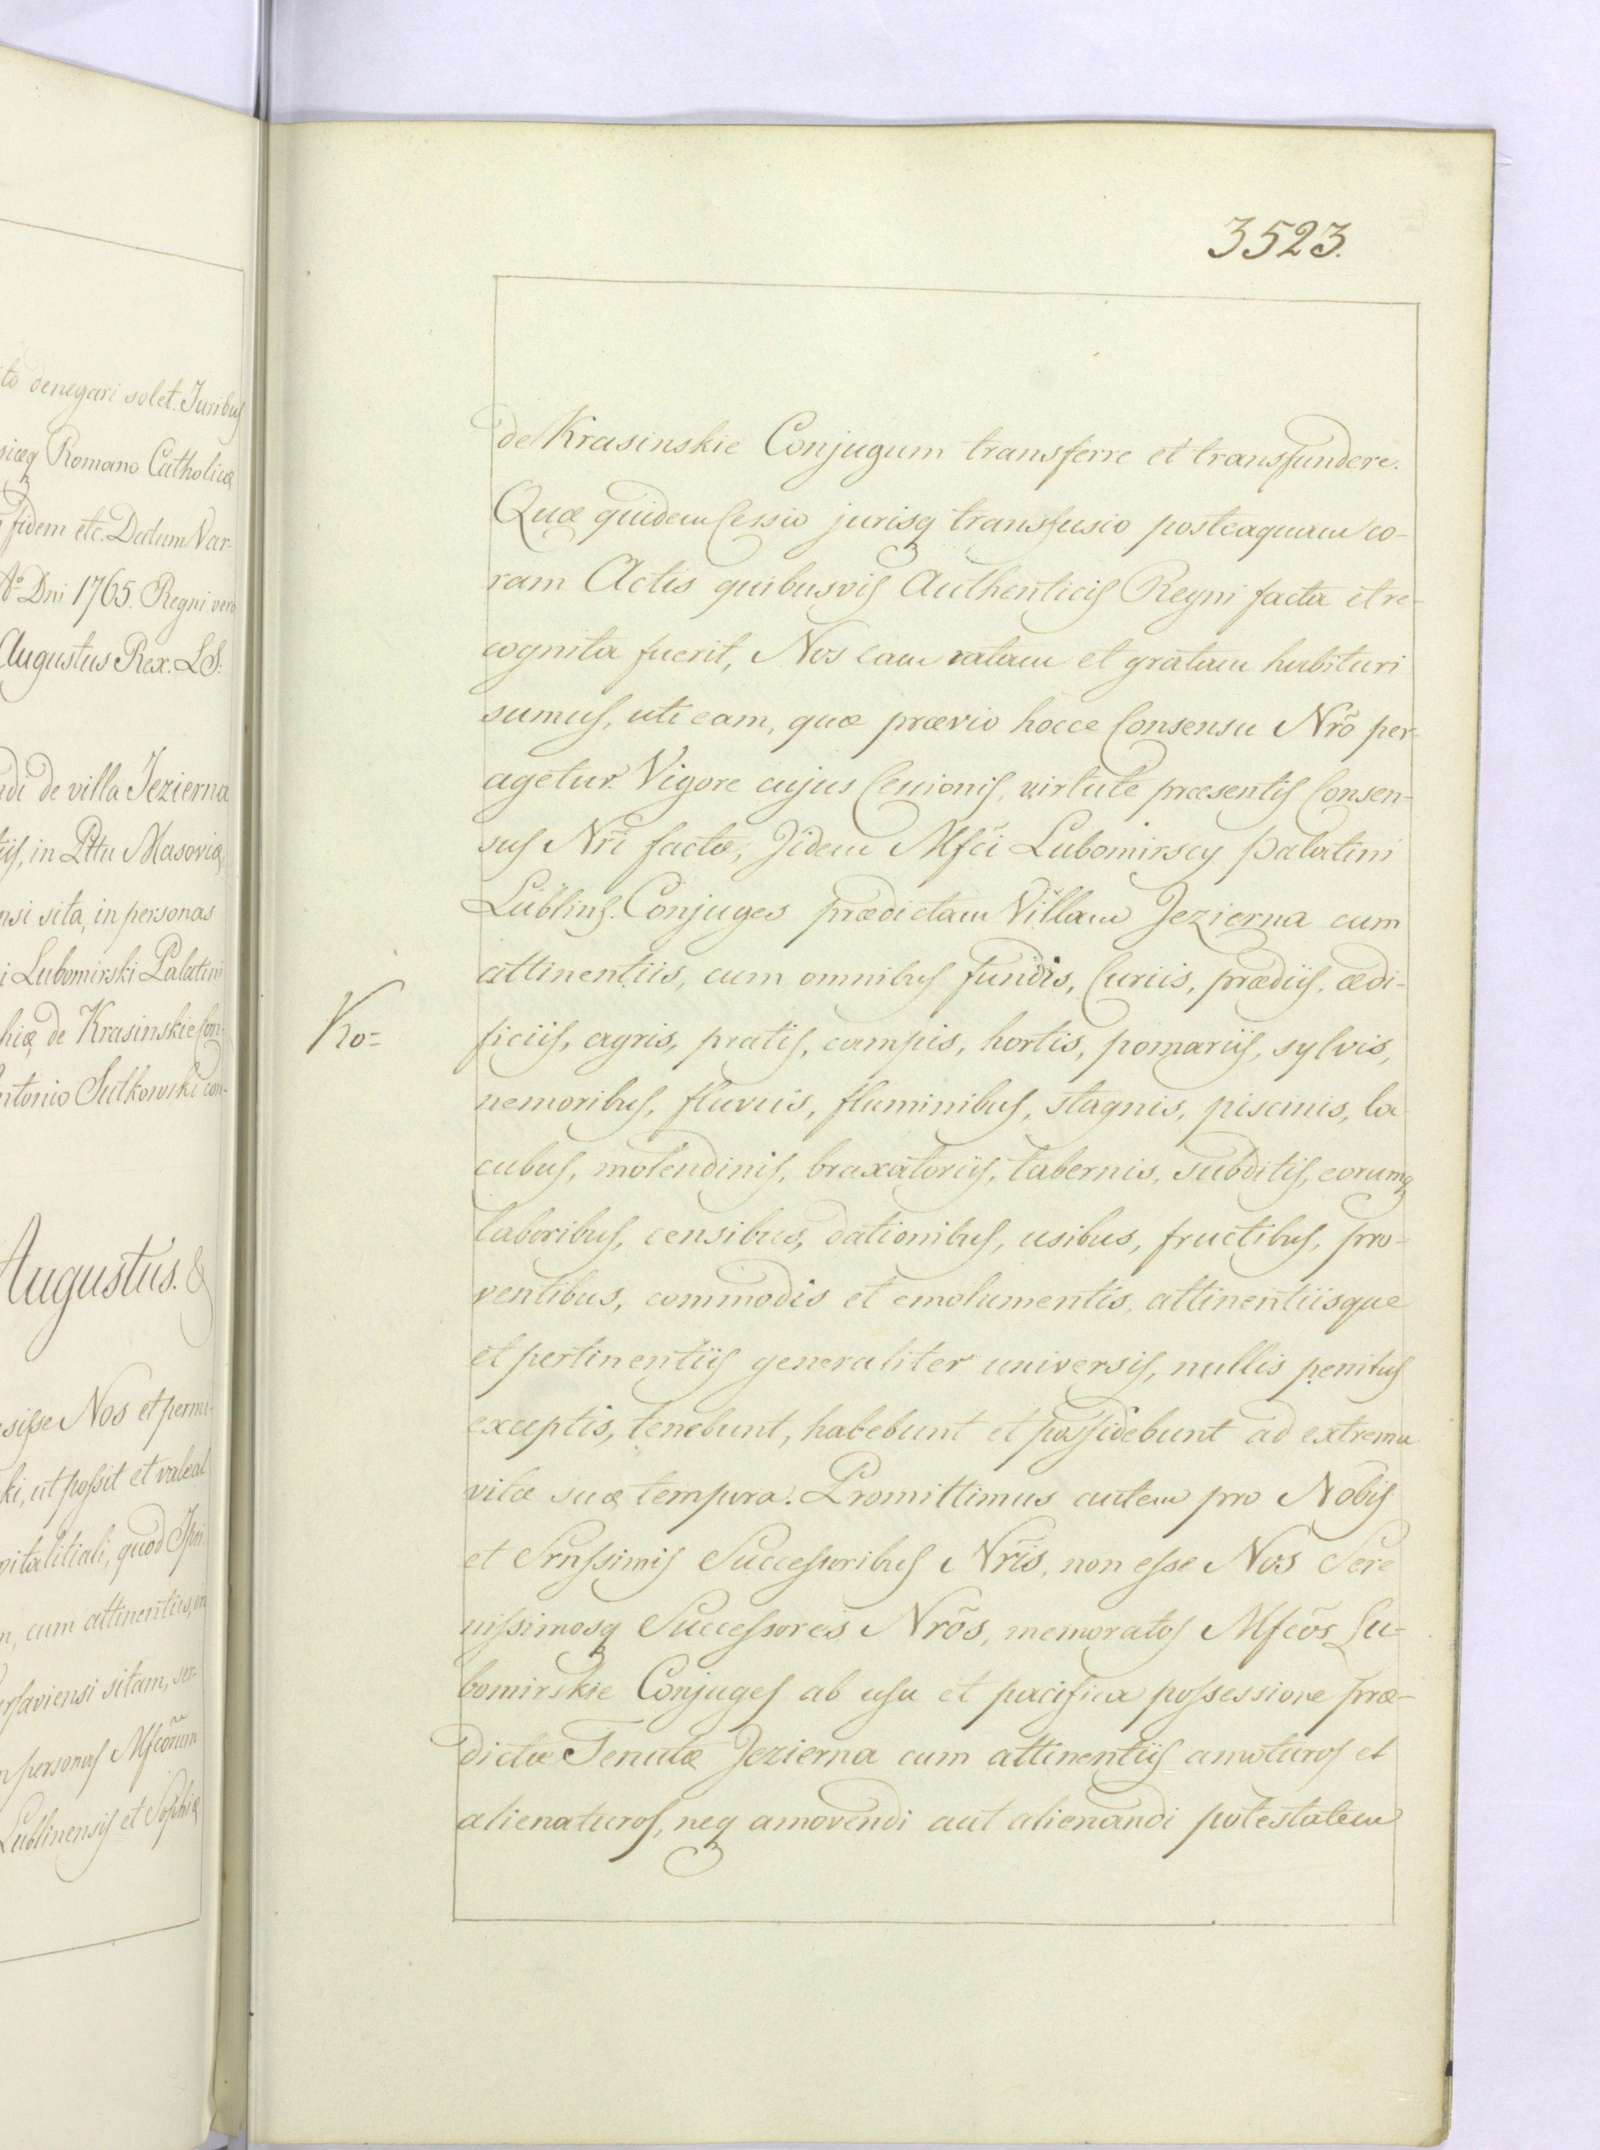 to denegari solet. Juribus
Romano Catholicæ
fidem etc. Datum Var-
Aº Dni 1765. Regni vero
Augustus Rex. LS.
di de villa Jezierna
iis, in Pttu Masoviæ,
nsi sita, in personas
i Lubomirski Palatini
hiæ de Krasinskie Con-
ntonio Sulkowski con-
Augustus. &
sisse Nos et permi-
ki, ut possit et valeat
vitalitiali, quod Ipsi
n, cum attinentiis, in
rsaviensi sitam, ser-
personas Mfcõrum
Lublinensis et Sophiæ
3523.
de Krasinskie Conjugum transferre et transfundere.
Quæ quidem Cessio jurisq transfusio posteaquam co-
ram Actis quibusvis Authenticis Regni facta et re-
cognita fuerit, Nos eam ratam et gratam habituri
sumus, uti eam, quæ prævio hocce Consensu Nrõ per-
agetur. Vigore cujus Cessionis, virtute præsentis Consen-
sus Nrĩ factæ, Jidem Mfcĩ Lubomirscy Palatini
Lublins. Conjuges prædictam Villam Jezierna cum
attinentiis, cum omnibus fundis, Curiis, prædiis, ædi-
Ko=
ficiis, agris, pratis, campis, hortis, pomariis, sylvis,
nemoribus, fluviis, fluminibus, stagnis, piscinis, la-
cubus, molendinis, braxatoriis, tabernis, subditis, eorumq
laboribus, censibus, dationibus, usibus, fructibus, pro-
ventibus, commodis et emolumentis, attinentiisque
et pertinentiis generaliter universis, nullis penitus
exceptis, tenebunt, habebunt et possidebunt ad extrema
vitæ suæ tempora. Promittimus autem pro Nobis
et Srnssimis Successoribus Nrĩs, non esse Nos Sere
nissimosq Successores Nrõs, memoratos Mfcõs Lu-
bomirskie Conjuges ab usu et pacifica possessione præ-
dictæ Tenutæ Jezierna cum attinentiis amoturos et
alienaturos, neq amovendi aut alienandi potestatem